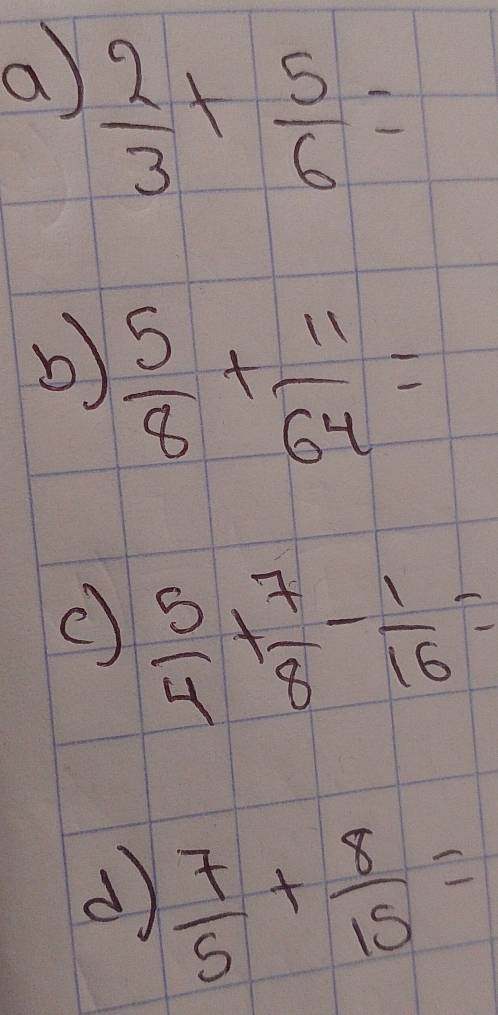 a) 2/3 + 5/6 =
b) 5/8 + 11/64 =
c) 5/4 + 7/8 - 1/16 =
d) 7/5 + 8/15 =